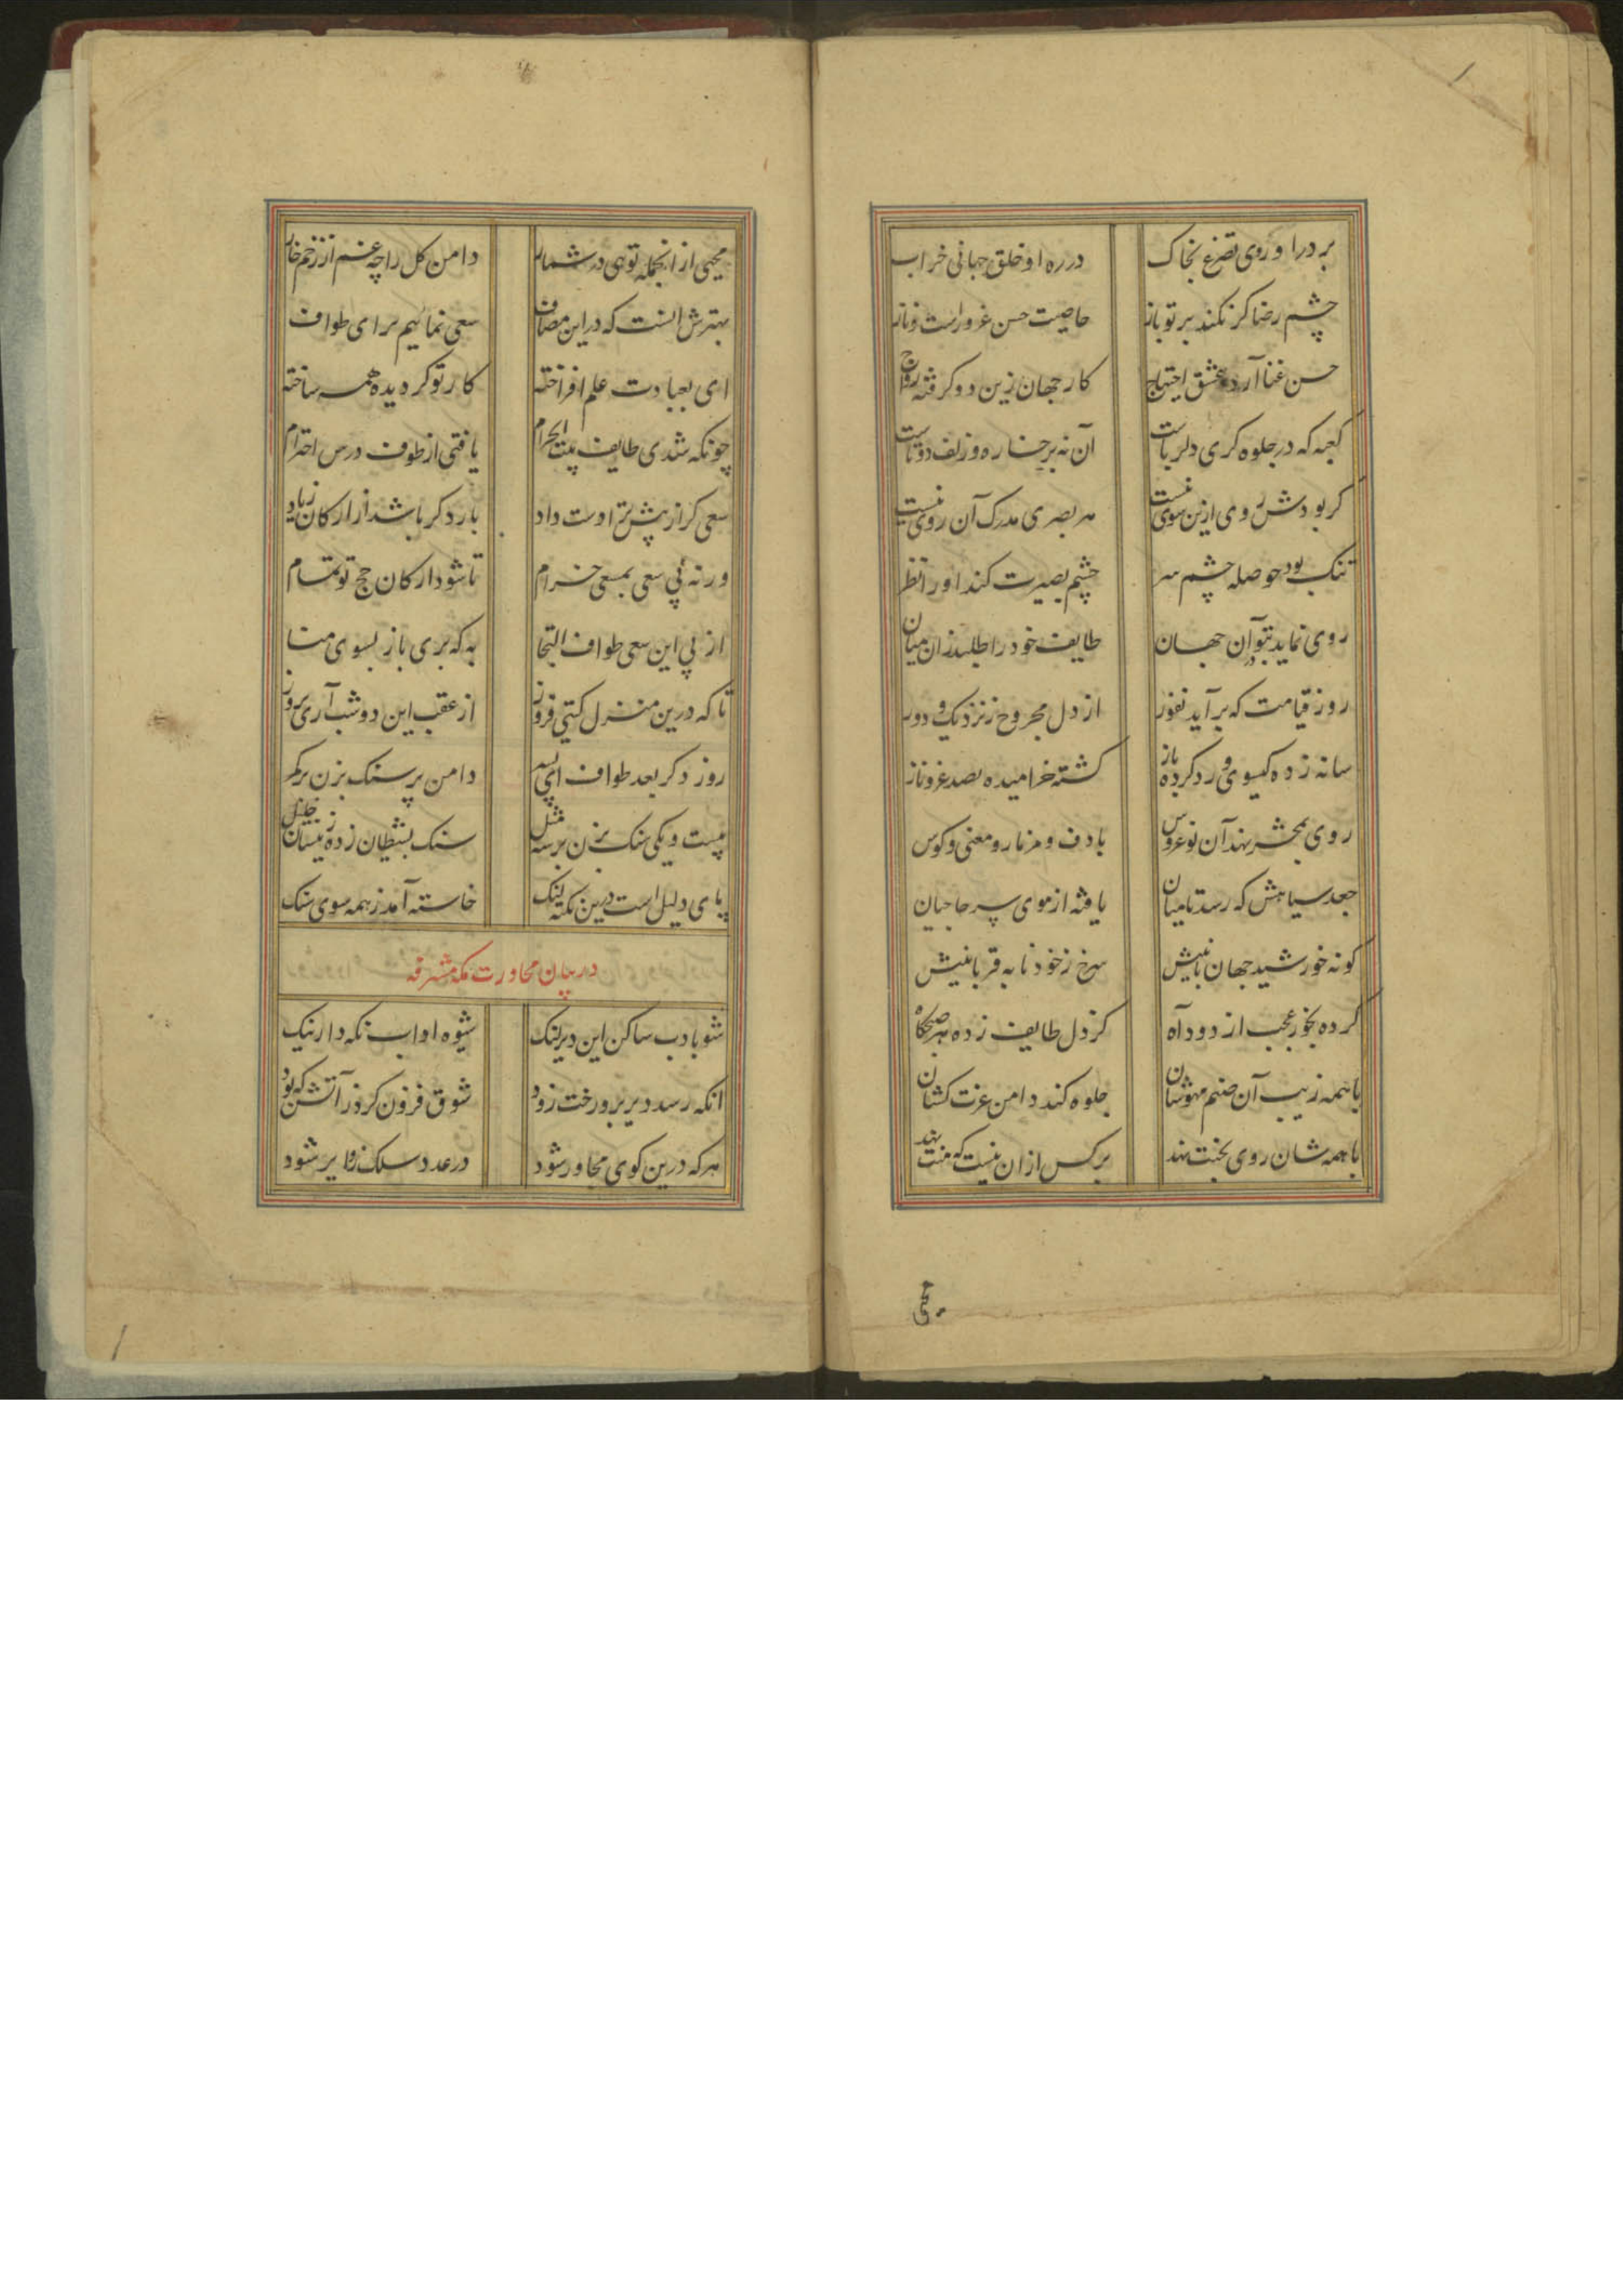 بر در او روی تضرع بخاک در ره او خلق جهانی خراب
چشم رضا کر نکند بر تو باز خاصیت حسن غرور است و ناز
حسن غنا آرد و عشق احتیاج کار جهان زین دو کرفته رواج
کعبه که در جلوه کری دلرباست آن نه برخساره و زلف دوتاست
کر بودش روی ازین سوی نیست هر بصری مدرک آن روی نیست
تنک بود حوصله چشم سر چشم بصیرت کند او را نظر
روی نماید بتو آن جهان طایف خود را طلبد زان میان
روز قیامت که بر آید نفور از دل مجروح ز نزدیک و دور
شانه زده کیسوی و رد کرده باز کشته خرامیده بصد عز و ناز
روی بمحشر نهد آن نوعروس با دف و مزمار و مغنی و کوس
جعد سیاهش که رسد تا میان یافته از موی سر حاجیان
کونه خورشید جهان تابیش سرخ ز خونابه قربانیش
کرده بخور عجب از دود آه کز دل طایف زده هر صبحکاه
با همه زیب آن صنم مهوشان جلوه کند دامن عزت کشان
با همه شان روی بجنت نهد بر کس از آن نیست که منت نهد
محیی
محیی از انجمله توهی در شمار دامن کل را چه غم از زخم خار
بهترش آنست که در این مصاف سعی نمائیم برای طواف
ای بعبادت علم افراخته کار تو کردیده همه ساخته
چونکه شدی طایف بیت الحرام یافتی از طوف درس احترام
سعی کر از پیش ترا دست داد بار دکر باشد از ارکان زیاد
ور نه پی سعی بمسعی خرام تا شود ارکان حج تو تمام
از پی این سعی طواف التجا به که بری باز بسوی منا
تا که درین منزل کیتی فروز از عقب این دو شب آری بروز
روز دکر بعد طواف ای پسر دامن پر سنک بزن بر کمر
بیست و یکی سنک بزن بر سه مثل سنک بشیطان زده نیسان ز خلیل
پای دلیل است درین نکته لنک خاسته آمد ز همه سوی سنک
در بیان مجاورت مکه مشرفه
شو بادب ساکن این دیر لنک شیوه اداب نکه دار نیک
انکه رسد دیر برو رخت زود شوق فزون کرد ز آتش که بود
هر که درین کوی مجاور شود در عدد سلک زوایر شود